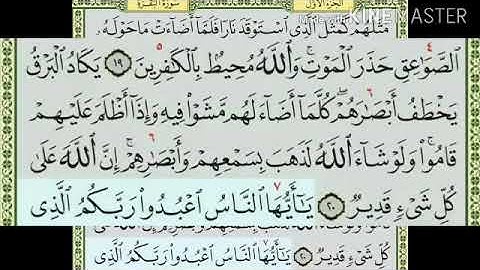 سورة البقرة
الجزء الأول
Made with KINEMASTER
مَثَلُهُمْ كَمَثَلِ الَّذِى اسْتَوْقَدَ نَارًا فَلَمَّا أَضَاءَتْ مَا حَوْلَهُ
الصَّوَٰعِقِ حَذَرَ الْمَوْتِ ۚ وَاللَّهُ مُحِيطٌ بِالْكَٰفِرِينَ ١٩ يَكَادُ الْبَرْقُ
يَخْطَفُ أَبْصَٰرَهُمْ ۖ كُلَّمَا أَضَاءَ لَهُم مَّشَوْا۟ فِيهِ وَإِذَا أَظْلَمَ عَلَيْهِمْ
قَامُوا۟ ۚ وَلَوْ شَاءَ اللَّهُ لَذَهَبَ بِسَمْعِهِمْ وَأَبْصَٰرِهِمْ ۚ إِنَّ اللَّهَ عَلَىٰ
كُلِّ شَىْءٍ قَدِيرٌ ٢٠ يَٰٓأَيُّهَا النَّاسُ اعْبُدُوا۟ رَبَّكُمُ الَّذِى
كُلِّ شَىْءٍ قَدِيرٌ ٢٠ يَٰٓأَيُّهَا النَّاسُ اعْبُدُوا۟ رَبَّكُمُ الَّذِى